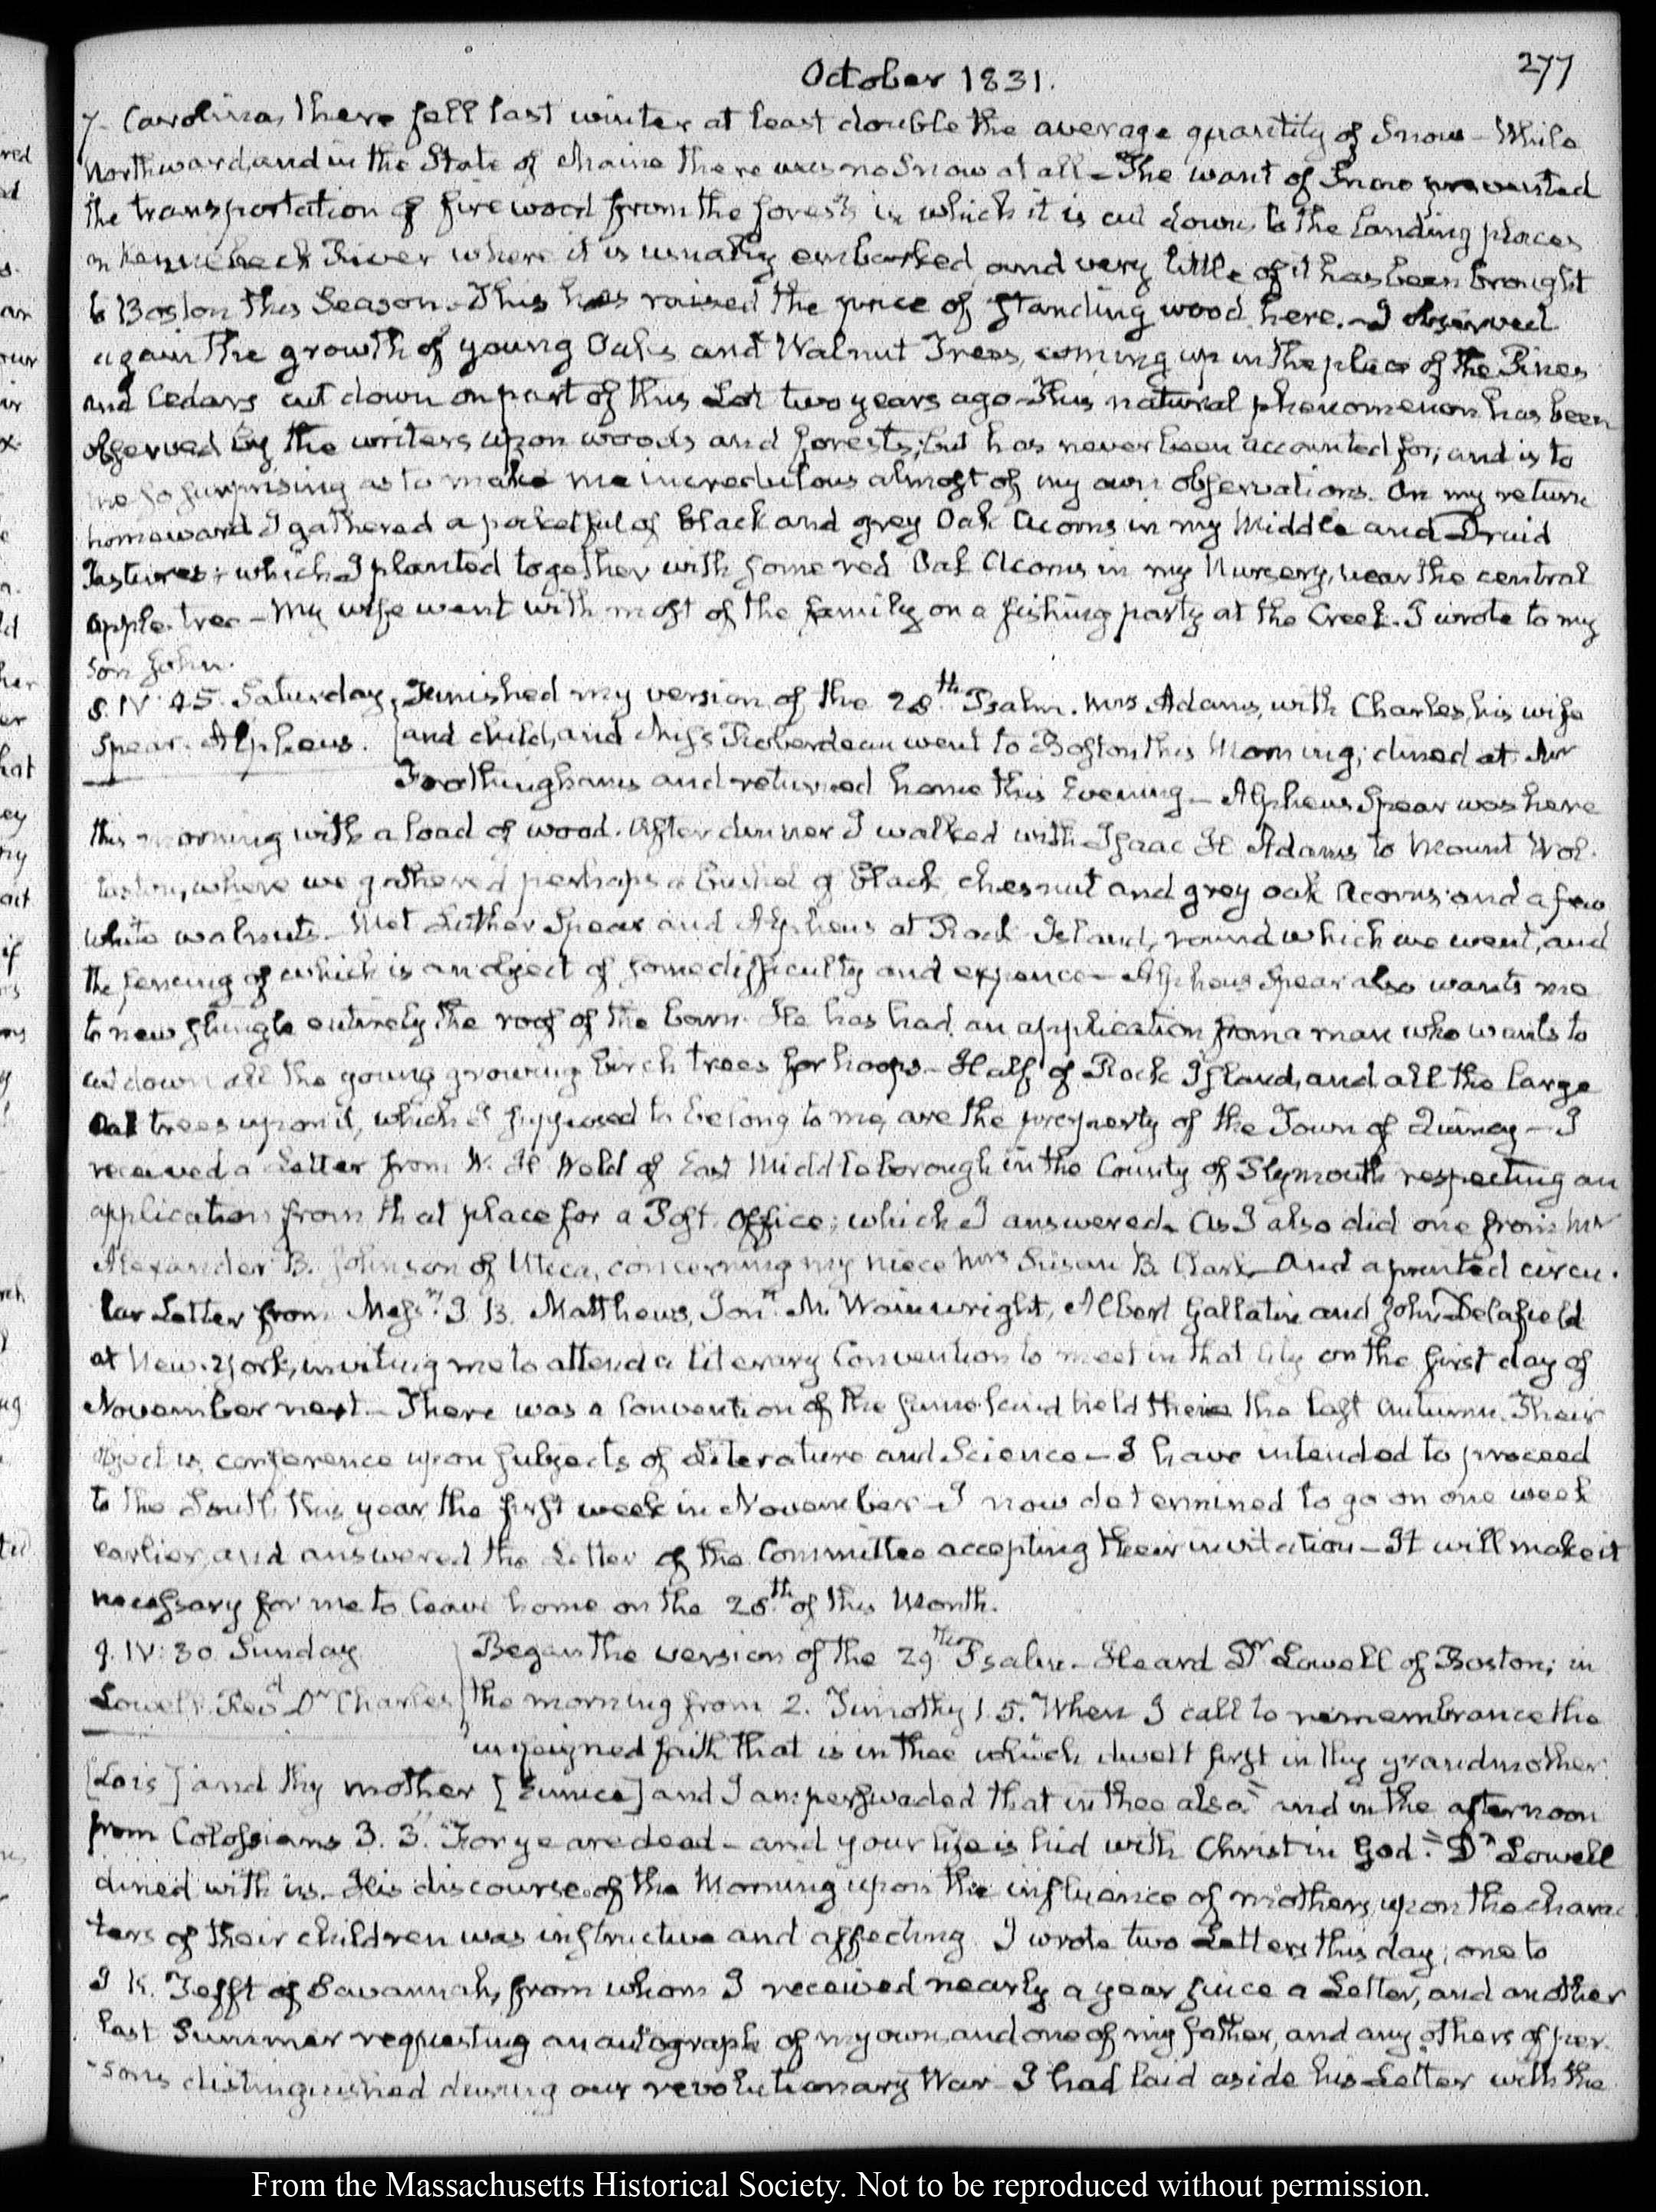 October 1831.
277
7. Carolina, there fell last winter at least double the average quantity of Snow – While
Northward, and in the State of Maine there was no Snow at all – The want of Snow prevented
the transportation of fire wood from the forests in which it is cut down, to the Landing places
on Kennebeck River where it is usually embarked, and very little of it has been brought
to Boston this Season. This has raised the price of standing wood here. – I observed
again the growth of young Oaks and Walnut Trees, coming up in the place of the Pines
and Cedars cut down on part of this Lot two years ago – This natural phenomenon has been
observed by the writers upon woods and forests; but has never been accounted for; and is to
me so surprising as to make me incredulous almost of my own observations. On my return
homeward I gathered a pocketful of black and grey Oak Acorns in my Middle and Druid
Pastures; which I planted together with some red Oak Acorns in my Nursery, near the central
apple-tree – My wife went with most of the family on a fishing party at the Creek. I wrote to my
Son John.
8. IV: 45. Saturday.
Spear. Alpheus.
Finished my version of the 28th. Psalm. Mrs. Adams, with Charles, his wife
and child, and Miss Roberdeau went to Boston this Morning; dined at Mr
Frothingham's and returned home this Evening – Alpheus Spear was here
this morning with a load of wood. After dinner I walked with Isaac H. Adams to Mount Wol-
laston, where we gathered perhaps a bushel of black, chesnut and grey oak Acorns and a few
white walnuts – Met Luther Spear and Alpheus at Rock Island, round which we went, and
the fencing of which is an object of some difficulty and expence – Alpheus Spear also wants me
to new shingle entirely the roof of the barn. He has had an application from a man who wants to
cut down all the young growing birch trees for hoops – Half of Rock Island, and all the large
Oak trees upon it, which I supposed to belong to me, are the property of the Town of Quincy – I
received a Letter from W. H. Weld of East Middleborough in the County of Plymouth respecting an
application from that place for a Post-Office; which I answered. As I also did one from Mr
Alexander B. Johnson of Utica, concerning my niece Mrs Susan B. Clark – And a printed circu-
lar Letter from Messrs. J. B. Matthews, Jonn. M. Wainwright, Albert Gallatin and John Delafield
at New-York, inviting me to attend a literary Convention to meet in that City on the first day of
November next – There was a Convention of the same kind held there the last Autumn. Their
object is, conference upon subjects of Literature and Science – I have intended to proceed
to the South this year, the first week in November – I now determined to go on one week
earlier, and answered the Letter of the Committee accepting their invitation – It will make it
necessary for me to leave home on the 28th of this Month.
9. IV: 30. Sunday
Lowell. Revd. Dr Charles
Began the version of the 29th. Psalm – Heard Dr Lowell of Boston; in
the morning from 2. Timothy 1. 5. "When I call to remembrance the
unfeigned faith that is in thee which dwelt first in thy grandmother
[Lois] and thy mother [Eunice] and I am perswaded that in thee also" and in the afternoon
from Colossians 3. 3. "For ye are dead – and your life is hid with Christ in God." Dr. Lowell
dined with us. His discourse of the Morning upon the influence of mothers, upon the charac
ters of their children was instructive and affecting. I wrote two Letters this day; one to
I. K. Tefft of Savannah, from whom I received nearly a year since a Letter, and another
last Summer requesting an autograph of my own, and one of my father, and any others of per-
-sons distinguished during our revolutionary War – I had laid aside his Letter with the
From the Massachusetts Historical Society. Not to be reproduced without permission.